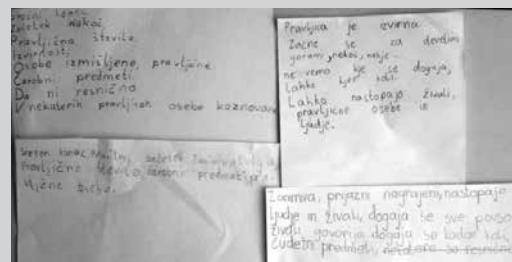 srečni konec
Začetek nekoč
Pravljična števila
Izvirnost
Osebe izmišljene, pravljične
Čarobni predmeti
Da ni resnično
V nekaterih pravljicah osebe kaznovane
Pravljica je izvirna
Začne se za devetimi
gorami, nekoč, nekje.
ne vemo kje se dogaja,
Lahko kjer koli.
Lahko nastopajo živali,
pravljične osebe in
ljudje.
Srečen konec, začetek
Pravljično število, čarobni predmeti
osebe.
Zanimiva, prijazni nagrajeni, nastopajo
ljudje in živali, dogaja se sve povsod
živali govorijo dogaja se kadar koli,
čudežni predmeti,